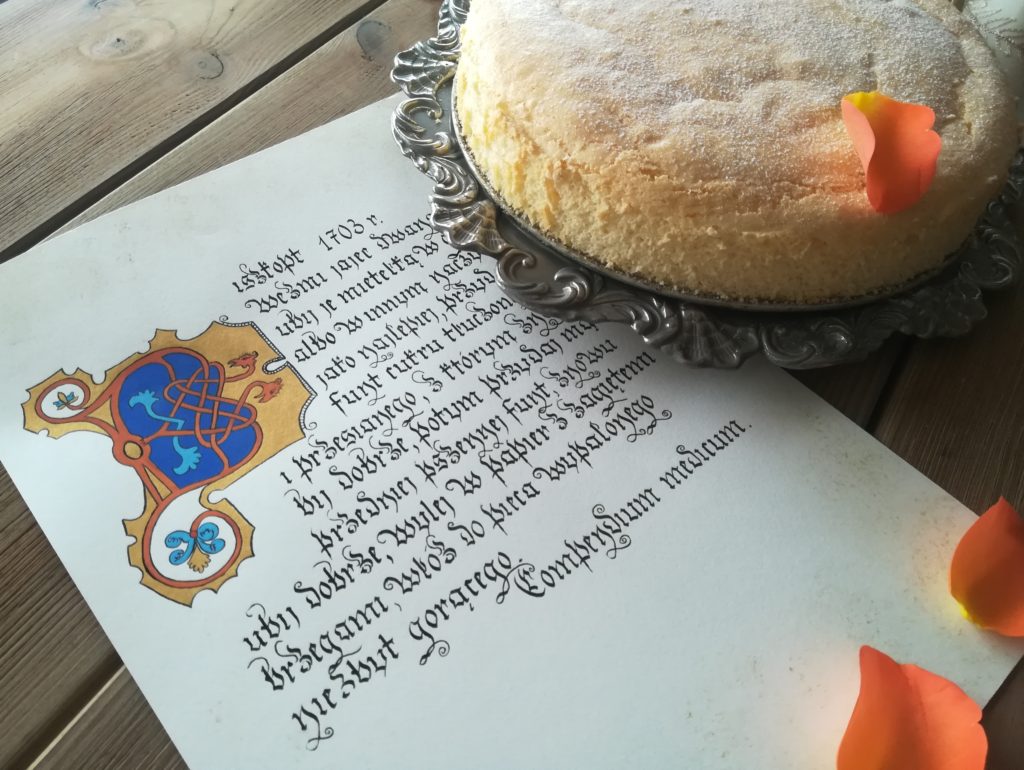 Biszkopt 1703 r.
Weźmi jajec
ubij je mietełką w
albo w innym
jako najlepiej,
funt cukru
i przesianego, z którym
bij dobrze, potym przydaj
przedniej pszennej funt, znowu
ubij dobrze, wylej w papier z zagiętemi
brzegami, włóż do pieca wypalonego
nie zbyt gorącego.
Compendium medicum.